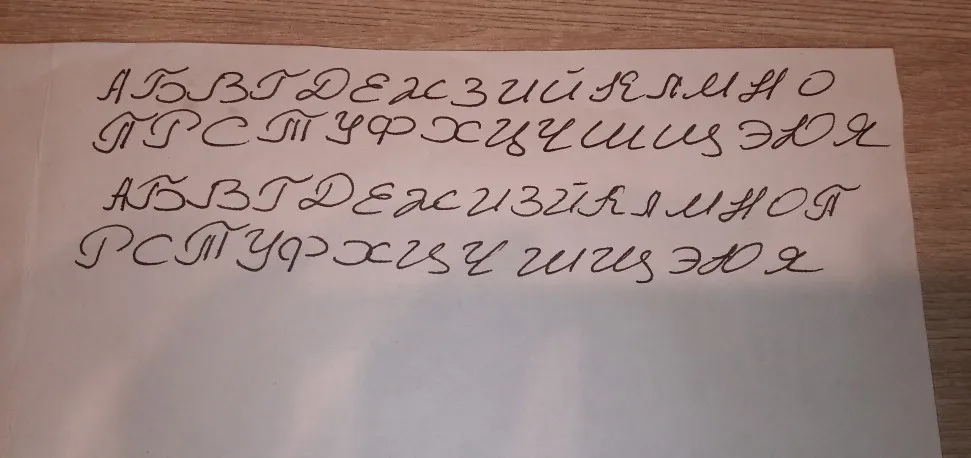 АБВГДЕЖЗИЙКЛМНО
ПРСТУФХЦЧШЩЭЮЯ
АБВГДЕЖИЗЙКЛМНОП
РСТУФХЦЧШЩЭЮЯ